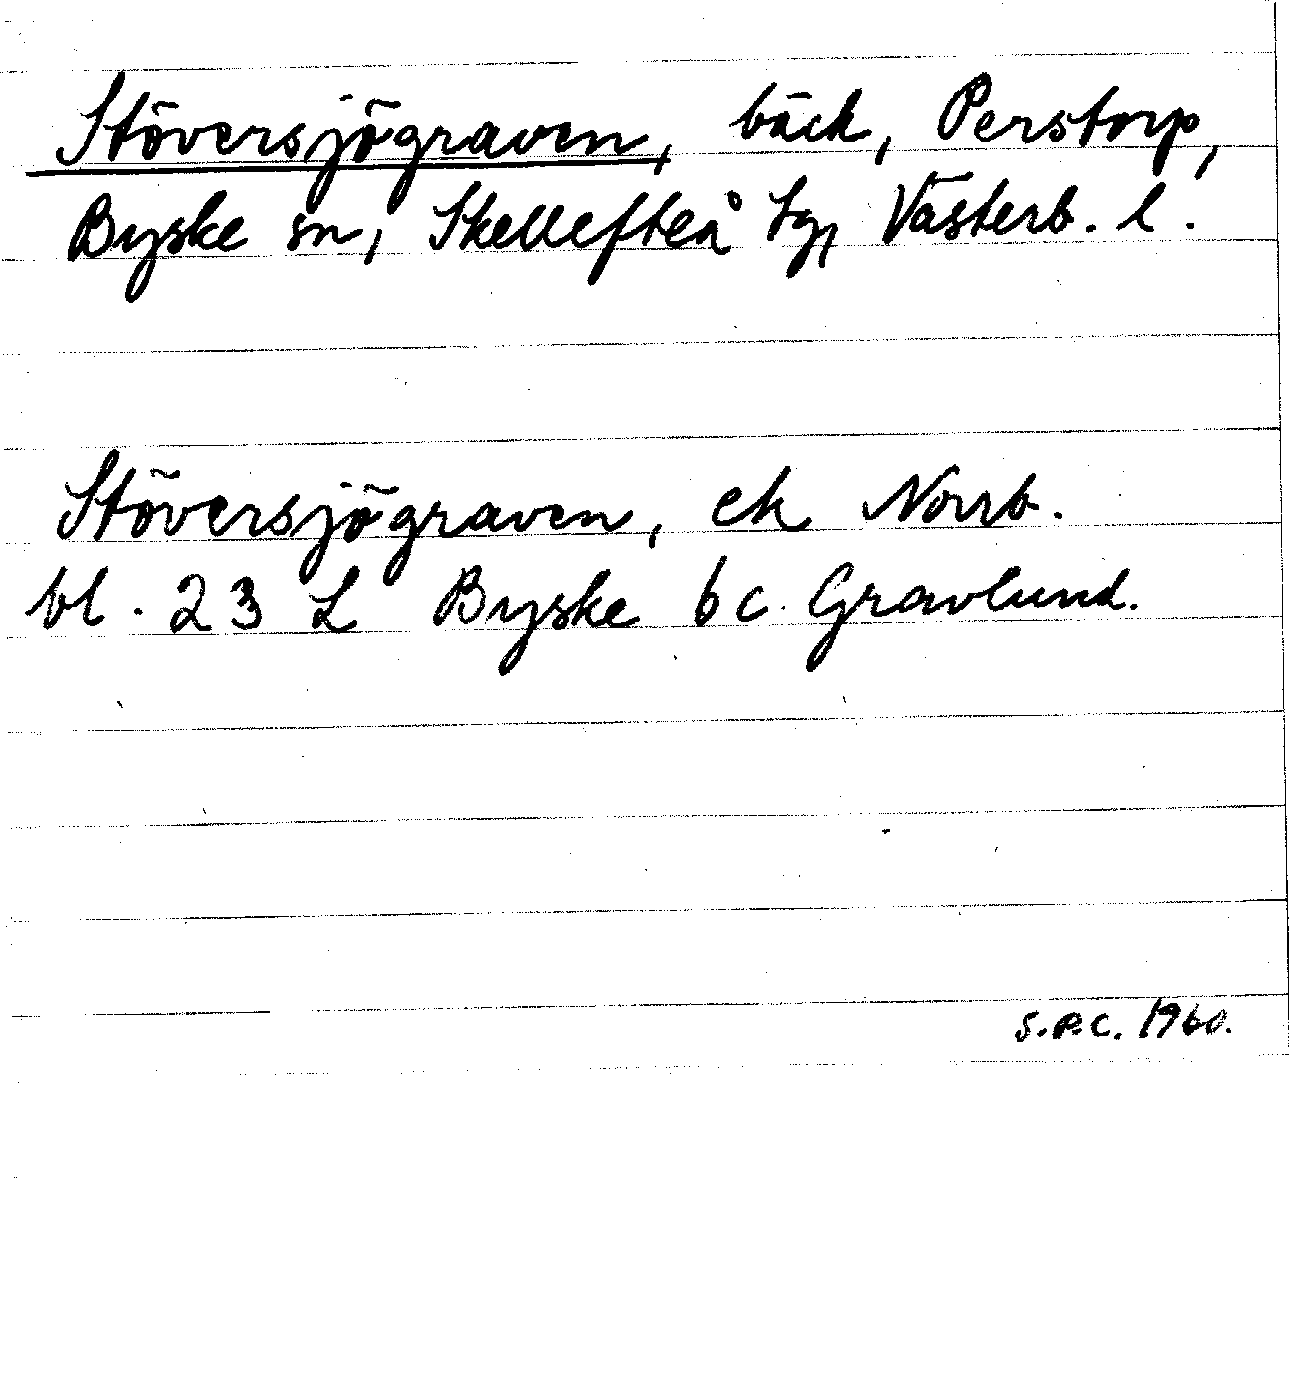 Stöversjögraven, bäck, Perstorp,
Byske sn, Skellefteå tg, Västerb. l.
Stöversjögraven, ek Norrb.
bl. 23 L Byske b c. Gravlund.
S.P.C. 1960.